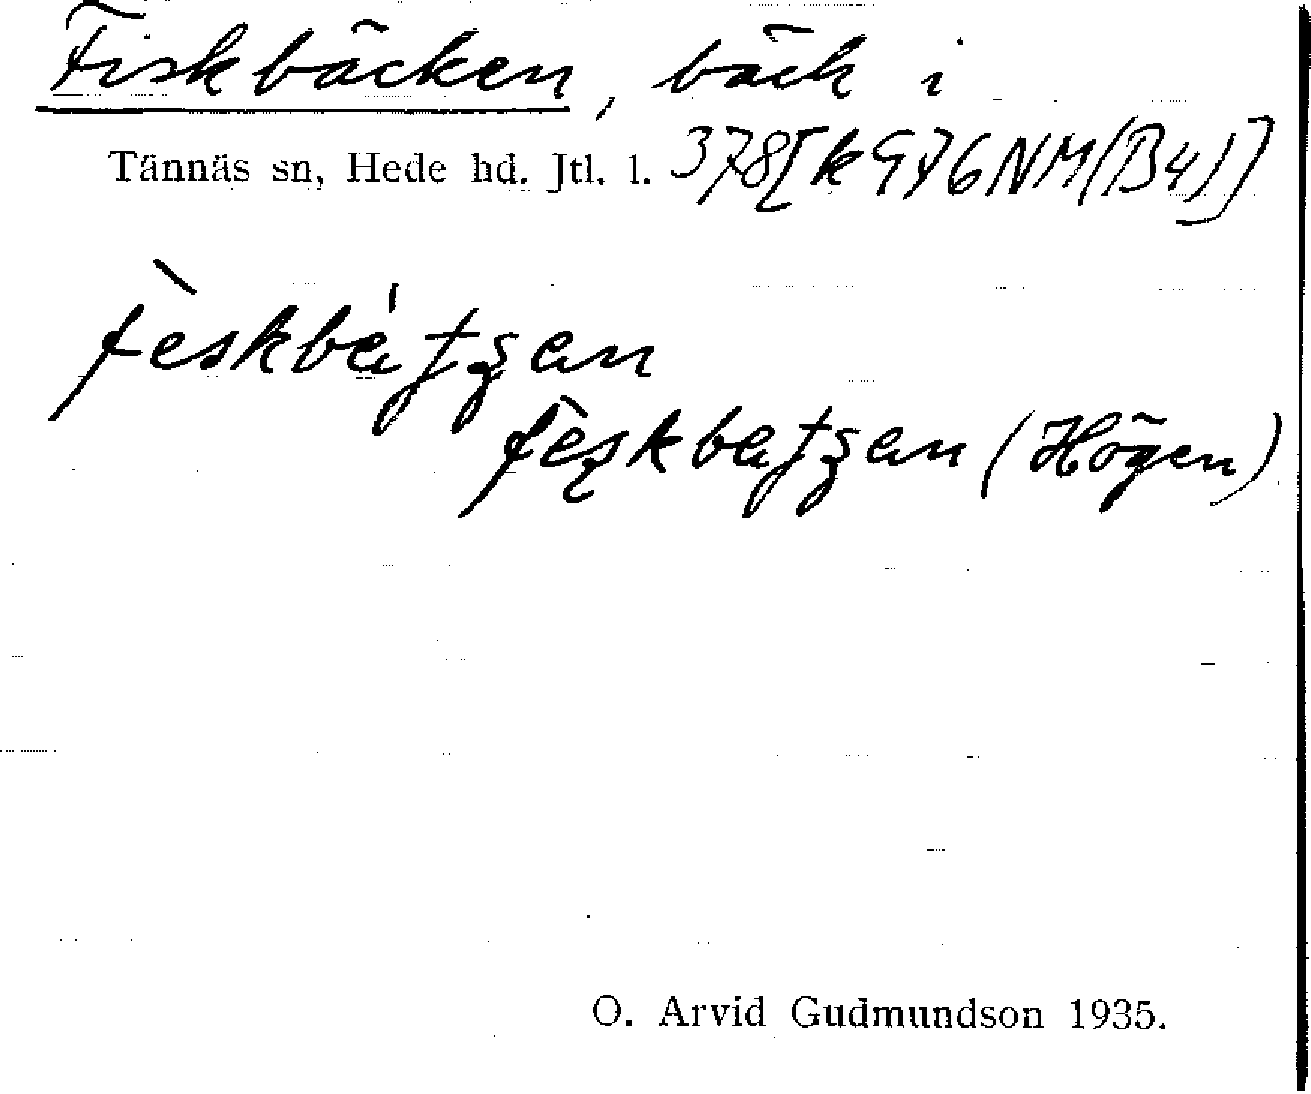 Fiskbäcken, bäck i
Tännäs sn, Hede hd. Jtl. l. 378[k976NM(B4)]
(Högen)
O. Arvid Gudmundson 1935.